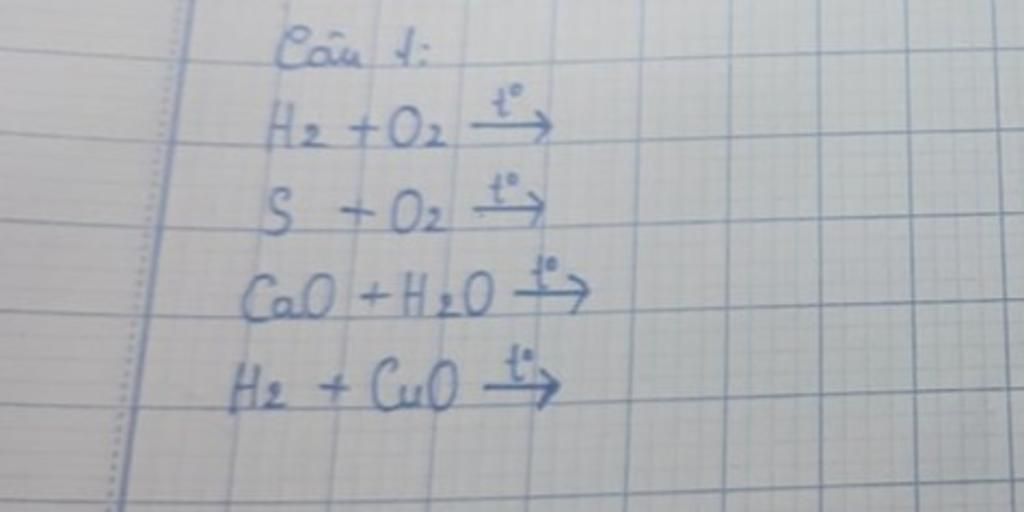 Câu 1:
H2 + O2 t°→
S + O2 t°→
CaO + H2O t°→
H2 + CuO t°→